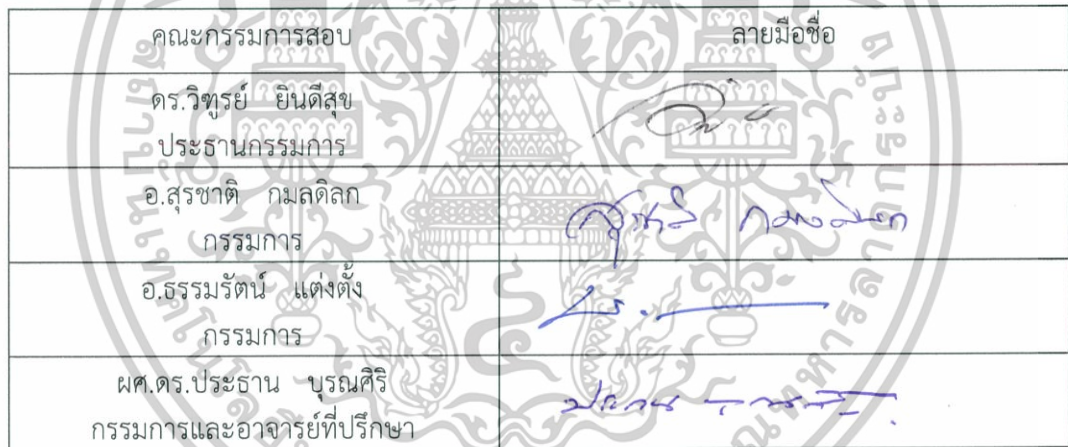 คณะกรรมการสอบ ลายมือชื่อ
ดร.วิฑูรย์ ยินดีสุข
ประธานกรรมการ
อ.สุรชาติ กมลดิลก สุรชาติ กมลดิลก
กรรมการ
อ.ธรรมรัตน์ แต่งตั้ง
กรรมการ
ผศ.ดร.ประธาน บุรณศิริ ประธาน บุรณศิริ
กรรมการและอาจารย์ที่ปรึกษา